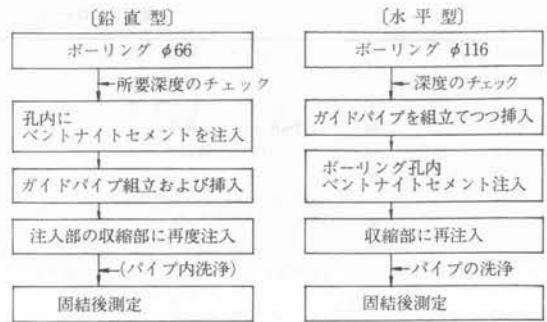 〔鉛直型〕
ボーリング φ66
所要深度のチェック
孔内に
ベントナイトセメントを注入
ガイドパイプ組立および挿入
注入部の収縮部に再度注入
(パイプ内洗浄)
固結後測定
〔水平型〕
ボーリング φ116
深度のチェック
ガイドパイプを組立てつつ挿入
ボーリング孔内
ベントナイトセメント注入
収縮部に再注入
パイプの洗浄
固結後測定